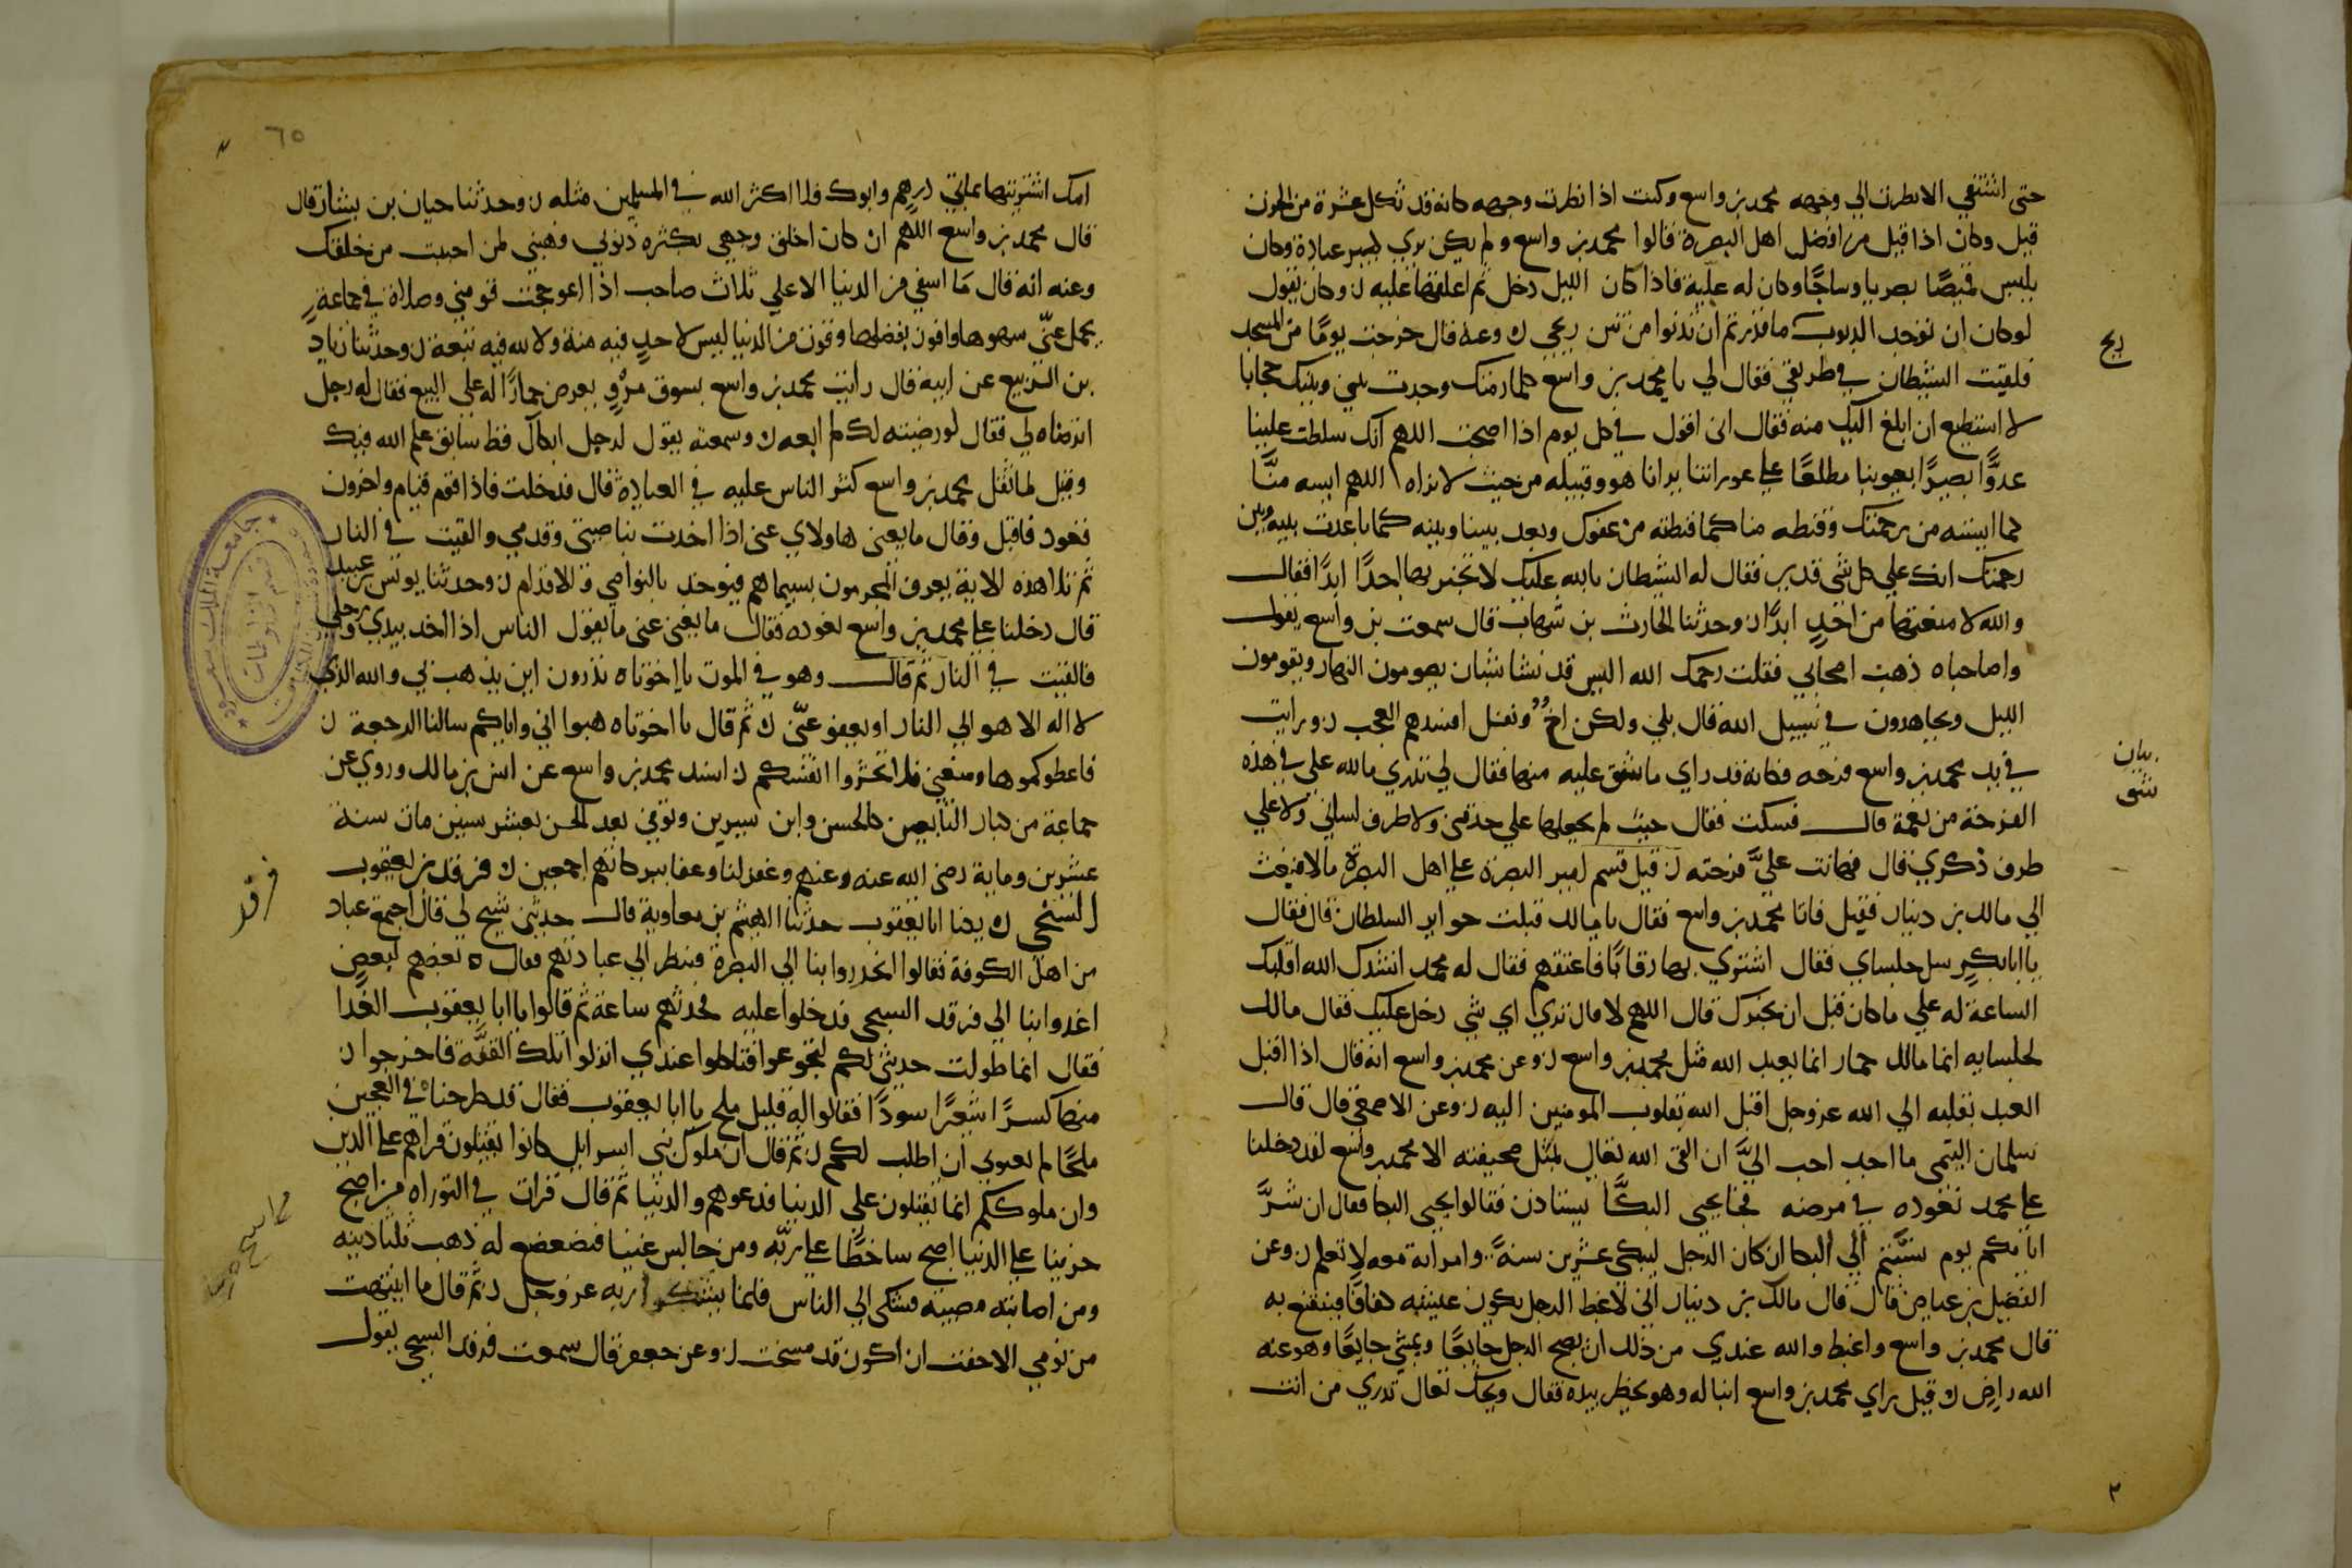 حتى اشتفي الا نظرت الي وجهه محمد بن واسع وكنت اذا نظرت وجهه كانه قد ثكل عشرة من الحزن
قيل وكان اذا قيل من افضل اهل البصرة قالوا محمد بن واسع ولم يكن يري كبير عبادة وكان
يلبس قميصًا بصريا وساجًا وكان له علية فاذا كان الليل دخل ثم اغلقها عليه ن وكان يقول
لو كان ان يوجد الذنوب ما قدرتم ان تدنوا من نتن ريحي ن وعنه قال خرجت يومًا من المسجد
ريح
فلقيت الشيطان في طريقي فقال لي يا محمد بن واسع كلما رمتك وجدت بيني وبينك حجابا
لا استطيع ان ابلغ اليك منه فقال اني اقول في كل يوم اذا اصبحت اللهم انك سلطت علينا
عدوًّا بصيرًا بعيوبنا مطلعًا علي عوراتنا يرانا هو وقبيله من حيث لا نراه اللهم ايسه منَّا
كما ايسته من رحمتك وقنطه منا كما قنطته من عفوك وبعد بيننا وبينه كما باعدت بينه وبين
رحمتك انك علي كل شي قدير فقال له الشيطان بالله عليك لا تخبر بها احدًا ابدًا فقال
والله لا منعتها من احدٍ ابدًا ن وحدثنا الحارث بن شهاب قال سمعت بن واسع يقول
واصاحباه ذهبت اصحابي فقلت رحمك الله اليس قد نشا شبان يصومون النهار ويقومون
الليل ويجاهدون في سبيل الله قال بلي ولكن اخ وتفل افسدهم العجب ن ورايت
بيان
في يد محمد بن واسع قرحه فكانه قد راي ما شق عليه منها فقال لي تدري ما لله علي في هذه
شق
القرحة من نعمة قال فسكت فقال حيث لم يجعلها علي حدقتي ولا طرف لساني ولا علي
طرف ذكري قال فهانت عليَّ قرحته ن قيل قسم امير البصرة علي اهل البصرة مالا فبعث
الي مالك بن دينار فقبل فاتا محمد بن واسع فقال يا مالك قبلت جوايز السلطان قال فقال
يا ابا بكرٍ سل جلساي فقال اشتري بها رقابًا فاعتقهم فقال له محمد انشدك الله اقلبك
الساعة له علي ما كان قبل ان يخبرك قال اللهم لا قال تدري اي شي دخل عليك فقال مالك
لجلسايه انما مالك حمار انما يعبد الله مثل محمد بن واسع ن وعن محمد بن واسع انه قال اذا اقبل
العبد بقلبه الي الله عز وجل اقبل الله بقلوب المومنين اليه ن وعن الاصمعي قال قال
سلمان التيمي ما احد احب اليَّ ان القي الله تعالي بمثل صحيفته الا محمد بن واسع لقد دخلنا
علي محمد نعوده في مرضه فجا يحيي البكَّا يستاذن فقالوا يحيي البكا فقال ان شرَّ
ايامكم يوم نسبتم الي البكا ان كان الرجل ليبكي عشرين سنةً وامراته معه لا تعلم ن وعن
الفضيل بن عياض قال قال مالك بن دينار اني لاغبط الرجل يكون عيشه كفافًا فيقنع به
قال محمد بن واسع واغبط والله عندي من ذلك ان يصبح الرجل جايعًا ويمشي جايعًا وهو عنه
الله راضٍ ن قيل راي محمد بن واسع ابنا له وهو يخطر بيده فقال ويحك تعال تدري من انت
٦٥
امك اشتريتها بمايتي درهم وابوك فلا اكثر الله في المسلمين مثله ن وحدثنا حيان بن يشار قال
قال محمد بن واسع اللهم ان كان اخلق وجهي بكثرة ذنوبي فهبني لمن احببت من خلقك
وعنه انه قال ما اسفي من الدنيا الا علي ثلاث صاحب اذا اعوججت قومني وصلاة في جماعةٍ
يحمل عنّي سهوها وافوز بفضلها وقوت من الدنيا ليس لاحدٍ فيه منة ولا لله فيه تبعة ن وحدثنا زياد
بن الربيع عن ابيه قال رايت محمد بن واسع بسوق مروٍ يعرض حمارًا له علي البيع فقال له رجل
اترضاه لي فقال لو رضيته لك لم ابعه ن وسمعته يقول لرجل ابكاك قط سابق علم الله فيك
وقيل لما ثقل محمد بن واسع كثر الناس عليه في العيادة قال فدخلت فاذا قوم قيام واخرون
قعود فاقبل وقال ما يغني هاولاي عني اذا اخذت بناصيتي وقدمي والقيت في النار
ثم تلا هذه الاية يعرف المجرمون بسيماهم فيوخذ بالنواصي والاقدام ن وحدثنا يونس بن عبيد
قال دخلنا علي محمد بن واسع نعوده فقال ما يغني عني ما يقول الناس اذا اخذ بيدي ورجلي
فالقيت في النار ثم قال وهو في الموت يا اخوتاه تدرون اين يذهب بي والله الذي
لا اله الا هو الي النار او يعفو عنّي ن ثم قال يا اخوتاه هبوا اني واياكم سالنا الرجعة ن
فاعطوكموها ومنعني فلا تخسروا انفسكم ن اسند محمد بن واسع عن انس بن مالك وروي عن
جماعة من كبار التابعين كالحسن وابن سيرين وتوفي بعد الحسن بعشر سنين مات سنة
عشرين وماية رضي الله عنه وعنهم وغفر لنا وعفا ببركاتهم اجمعين ن فرقد بن يعقوب
فرقد
السبخي ن يكنا ابا يعقوب حدثنا الهيثم بن معاوية قال حدثني شيخ لي قال اجتمع عباد
من اهل الكوفة فقالوا انحدروا بنا الي البصرة فننظر الي عبادتهم فقال بعضهم لبعضٍ
اغدوا بنا الي فرقد السبخي فدخلوا عليه فحدثهم ساعة ثم قالوا يا ابا يعقوب الغدا
فقال انما طولت حديثي لكم لتجوعوا فتاكلوا عندي انزلوا تلك القفَّة فاخرجوا ن
منها كسرًا شعيرًا سودًا فقالوا اله قليل ملح يا ابا يعقوب فقال قد طرحناه في العجين
ملحًا لم تعنوني ان اطلب لكم ن ثم قال ان ملوك بني اسرايل كانوا يقتلون قراهم علي الدين
وان ملوككم انما يقتلون علي الدنيا فدعوهم والدنيا ثم قال قرات في التوراه من اصبح
حزينا علي الدنيا اصبح ساخطًا علي ربّه ومن جالس غنيا فتضعضع له ذهب ثلثا دينه
ومن اصابته مصيبه فشكي الي الناس فانما يشكو ربه عز وجل ن ثم قال ما انتبهت
من نومي الا خفت ان اكون قد مسخت ن وعن جعفر قال سمعت فرقد السبخي يقول